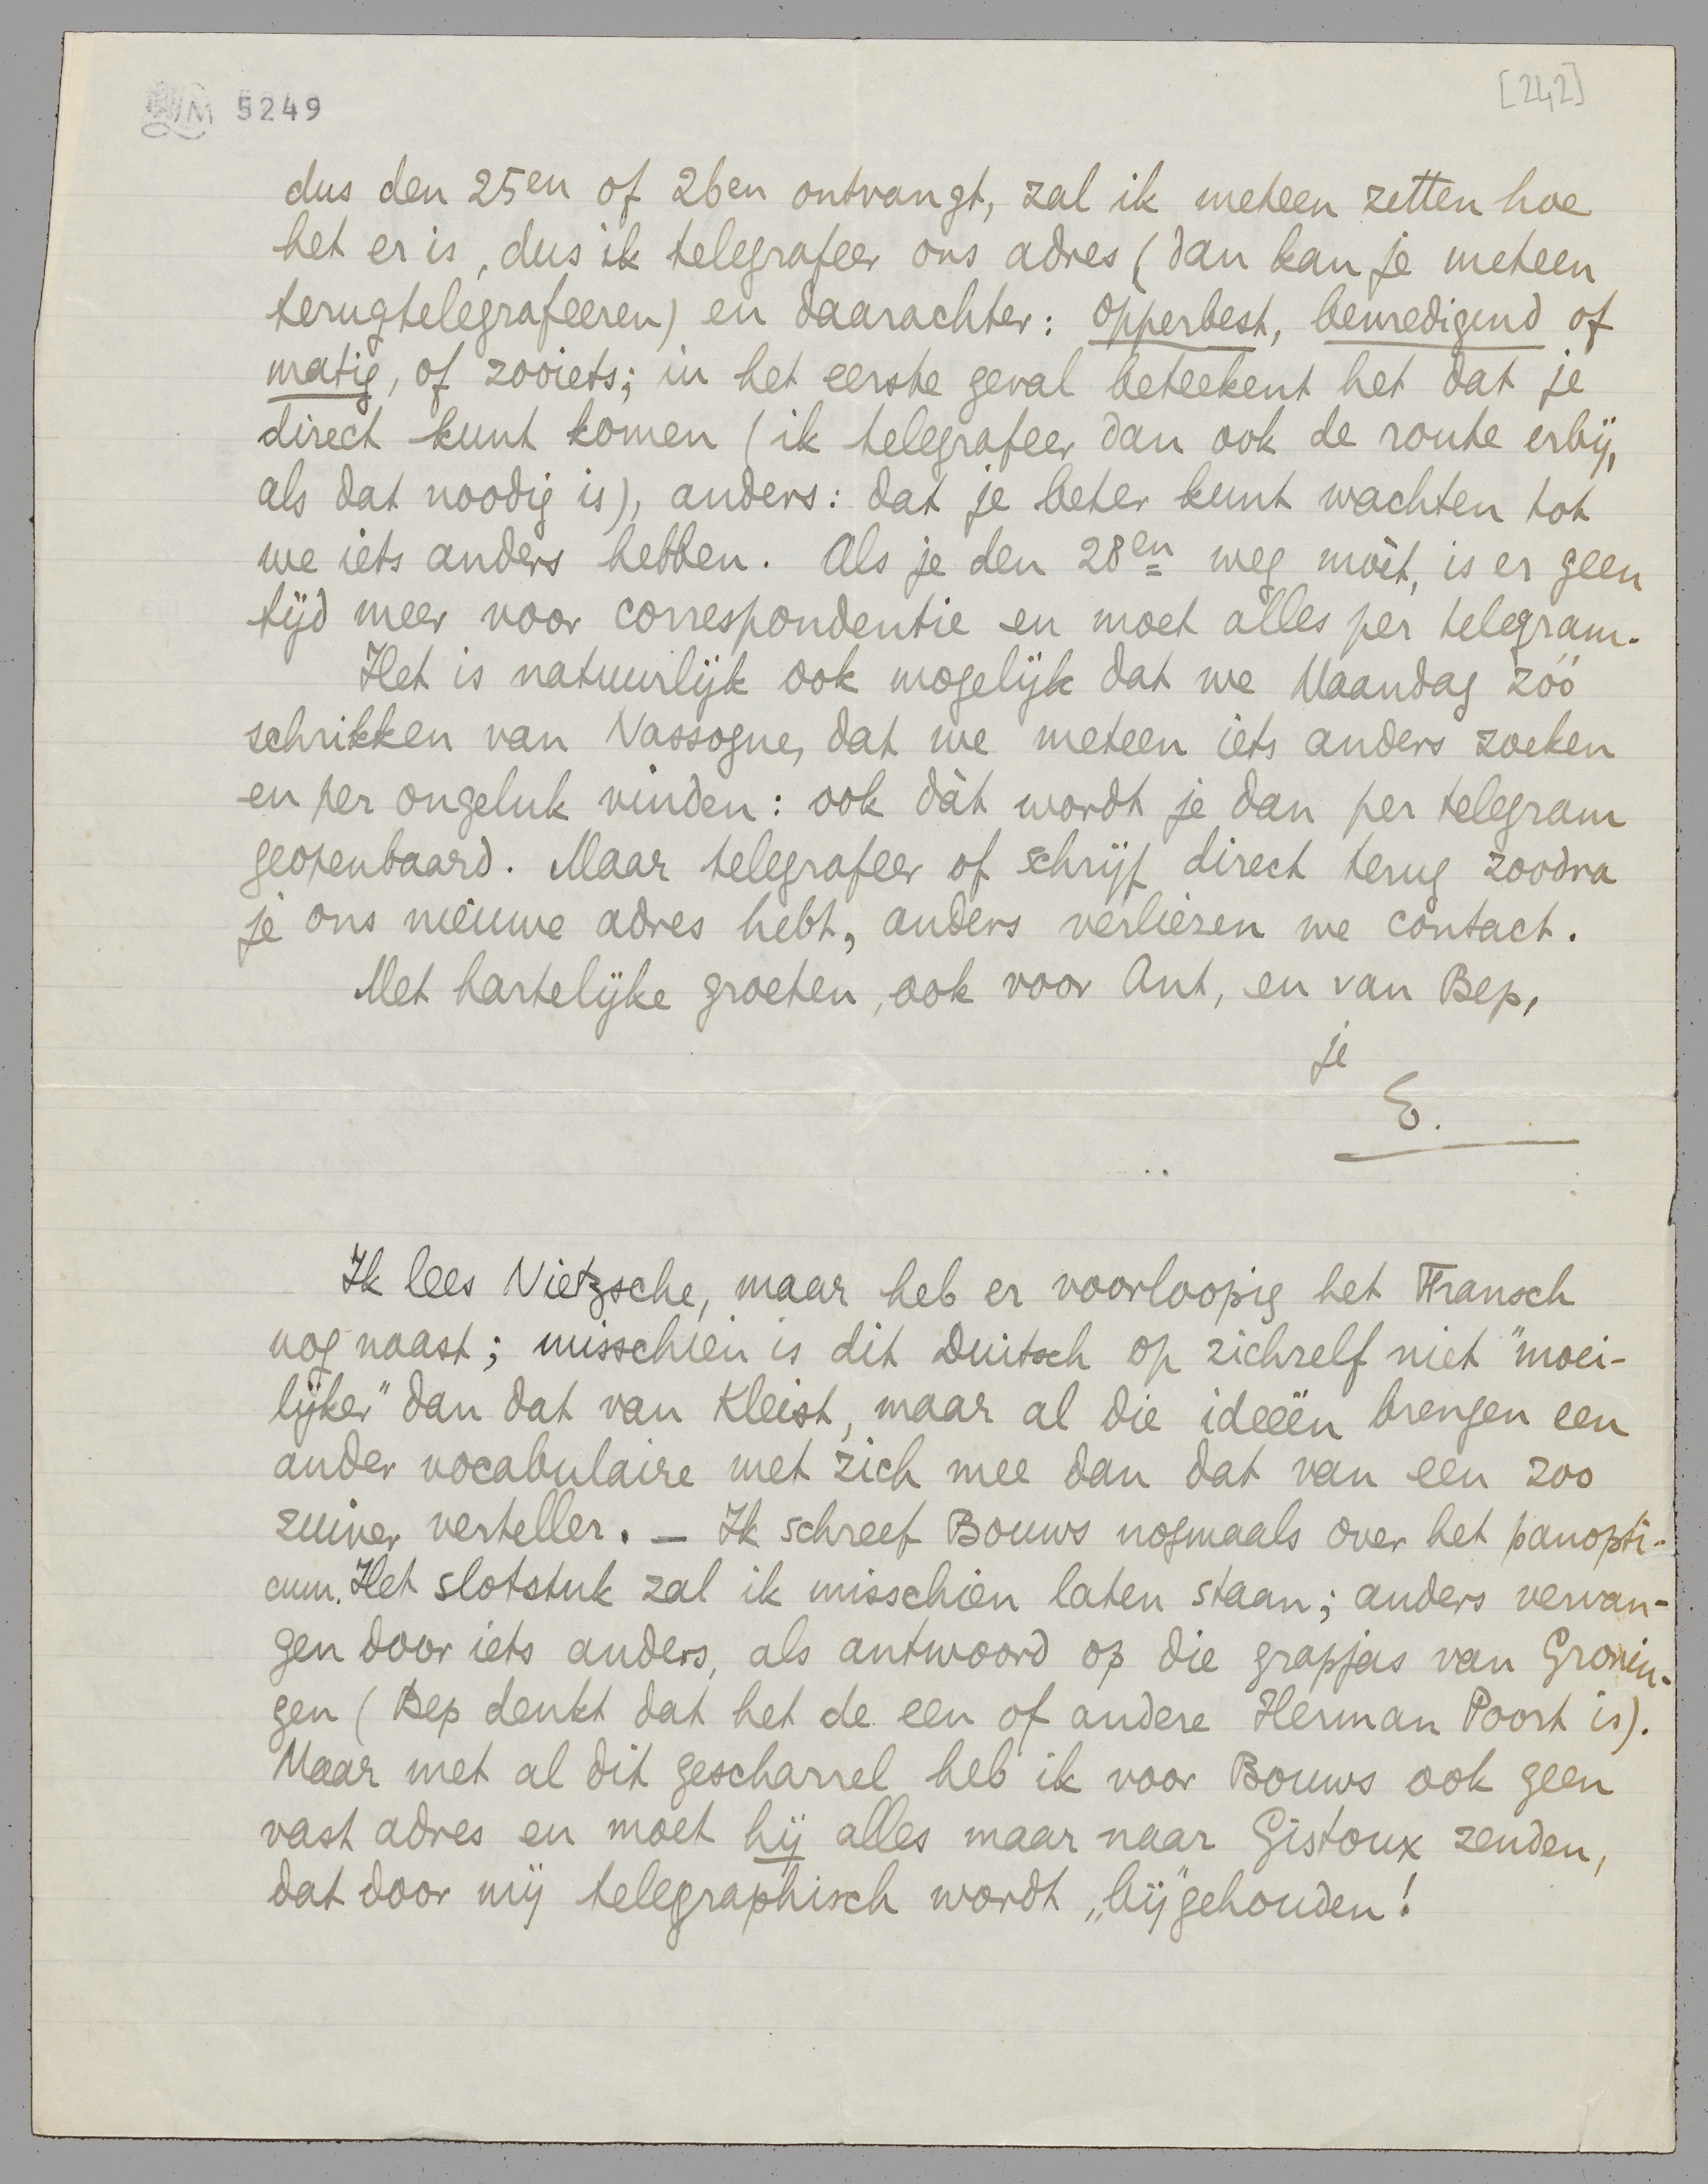 5249
[242]
dus den 25en of 26en ontvangt, zal ik meteen zetten hoe
het er is, dus ik telegrafeer ons adres (dan kan je meteen
terugtelegrafeeren) en daarachter: opperbest, bevredigend of
matig, of zooiets; in het eerste geval beteekent het dat je
direct kunt komen (ik telegrafeer dan ook de route erbij,
als dat noodig is), anders: dat je beter kunt wachten tot
we iets anders hebben. Als je den 28en weg mòèt, is er geen
tijd meer voor correspondentie en moet alles per telegram.
Het is natuurlijk ook mogelijk dat we Maandag zóó
schrikken van Nassogne, dat we meteen iets anders zoeken
en per ongeluk vinden: ook dàt wordt je dan per telegram
geopenbaard. Maar telegrafeer of schrijf direct terug zoodra
je ons nieuwe adres hebt, anders verliezen we contact.
Met hartelijke groeten, ook voor Ant, en van Bep,
je
E.
Ik lees Nietzsche, maar heb er voorloopig het Fransch
nog naast; misschien is dit Duitsch op zichzelf niet "moei-
lijker" dan dat van Kleist, maar al die ideeën brengen een
ander vocabulaire met zich mee dan dat van een zoo
zuiver verteller. — Ik schreef Bouws nogmaals over het panopti-
cum. Het slotstuk zal ik misschien laten staan; anders vervan-
gen door iets anders, als antwoord op die grapjas van Gronin-
gen (Bep denkt dat het de een of andere Herman Poort is).
Maar met al dit gescharrel heb ik voor Bouws ook geen
vast adres en moet hij alles maar naar Gistoux zenden,
dat door mij telegraphisch wordt „bij"gehouden!